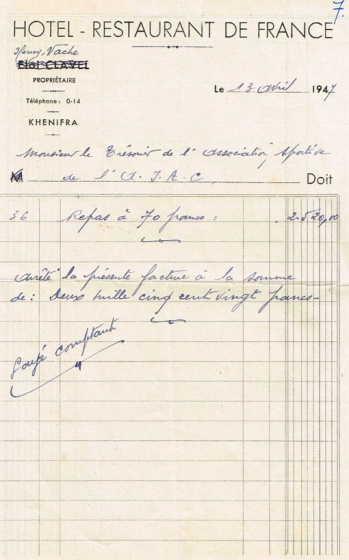 7.
HOTEL - RESTAURANT DE FRANCE
Henry Vache
Eloi CLAVEL
PROPRIÉTAIRE
Téléphone : 0-14
KHENIFRA
Le 13 avril 1947
Monsieur le Trésorier de l'association sportive
M de l'A.I.A.C. Doit
36 Repas à 70 francs : 2.520,00
Arrêté la présente facture à la somme
de : Deux mille cinq cent vingt francs-
comptant